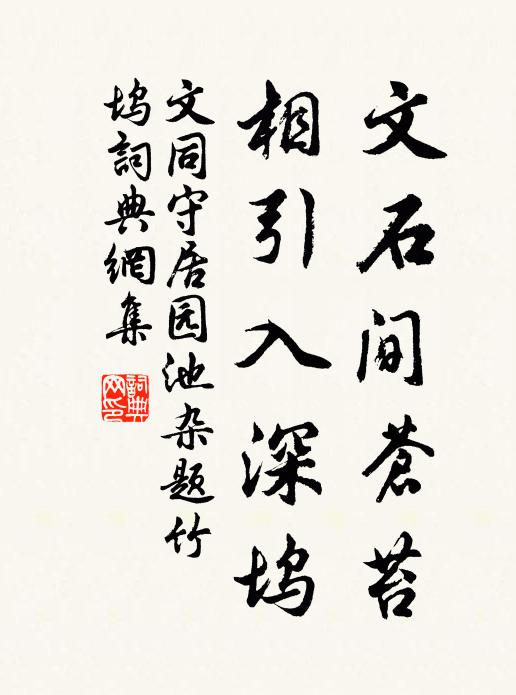 文石间蒼苔
相引入深坞
文同守居园池杂题竹
坞詞典網集
詞典
网印